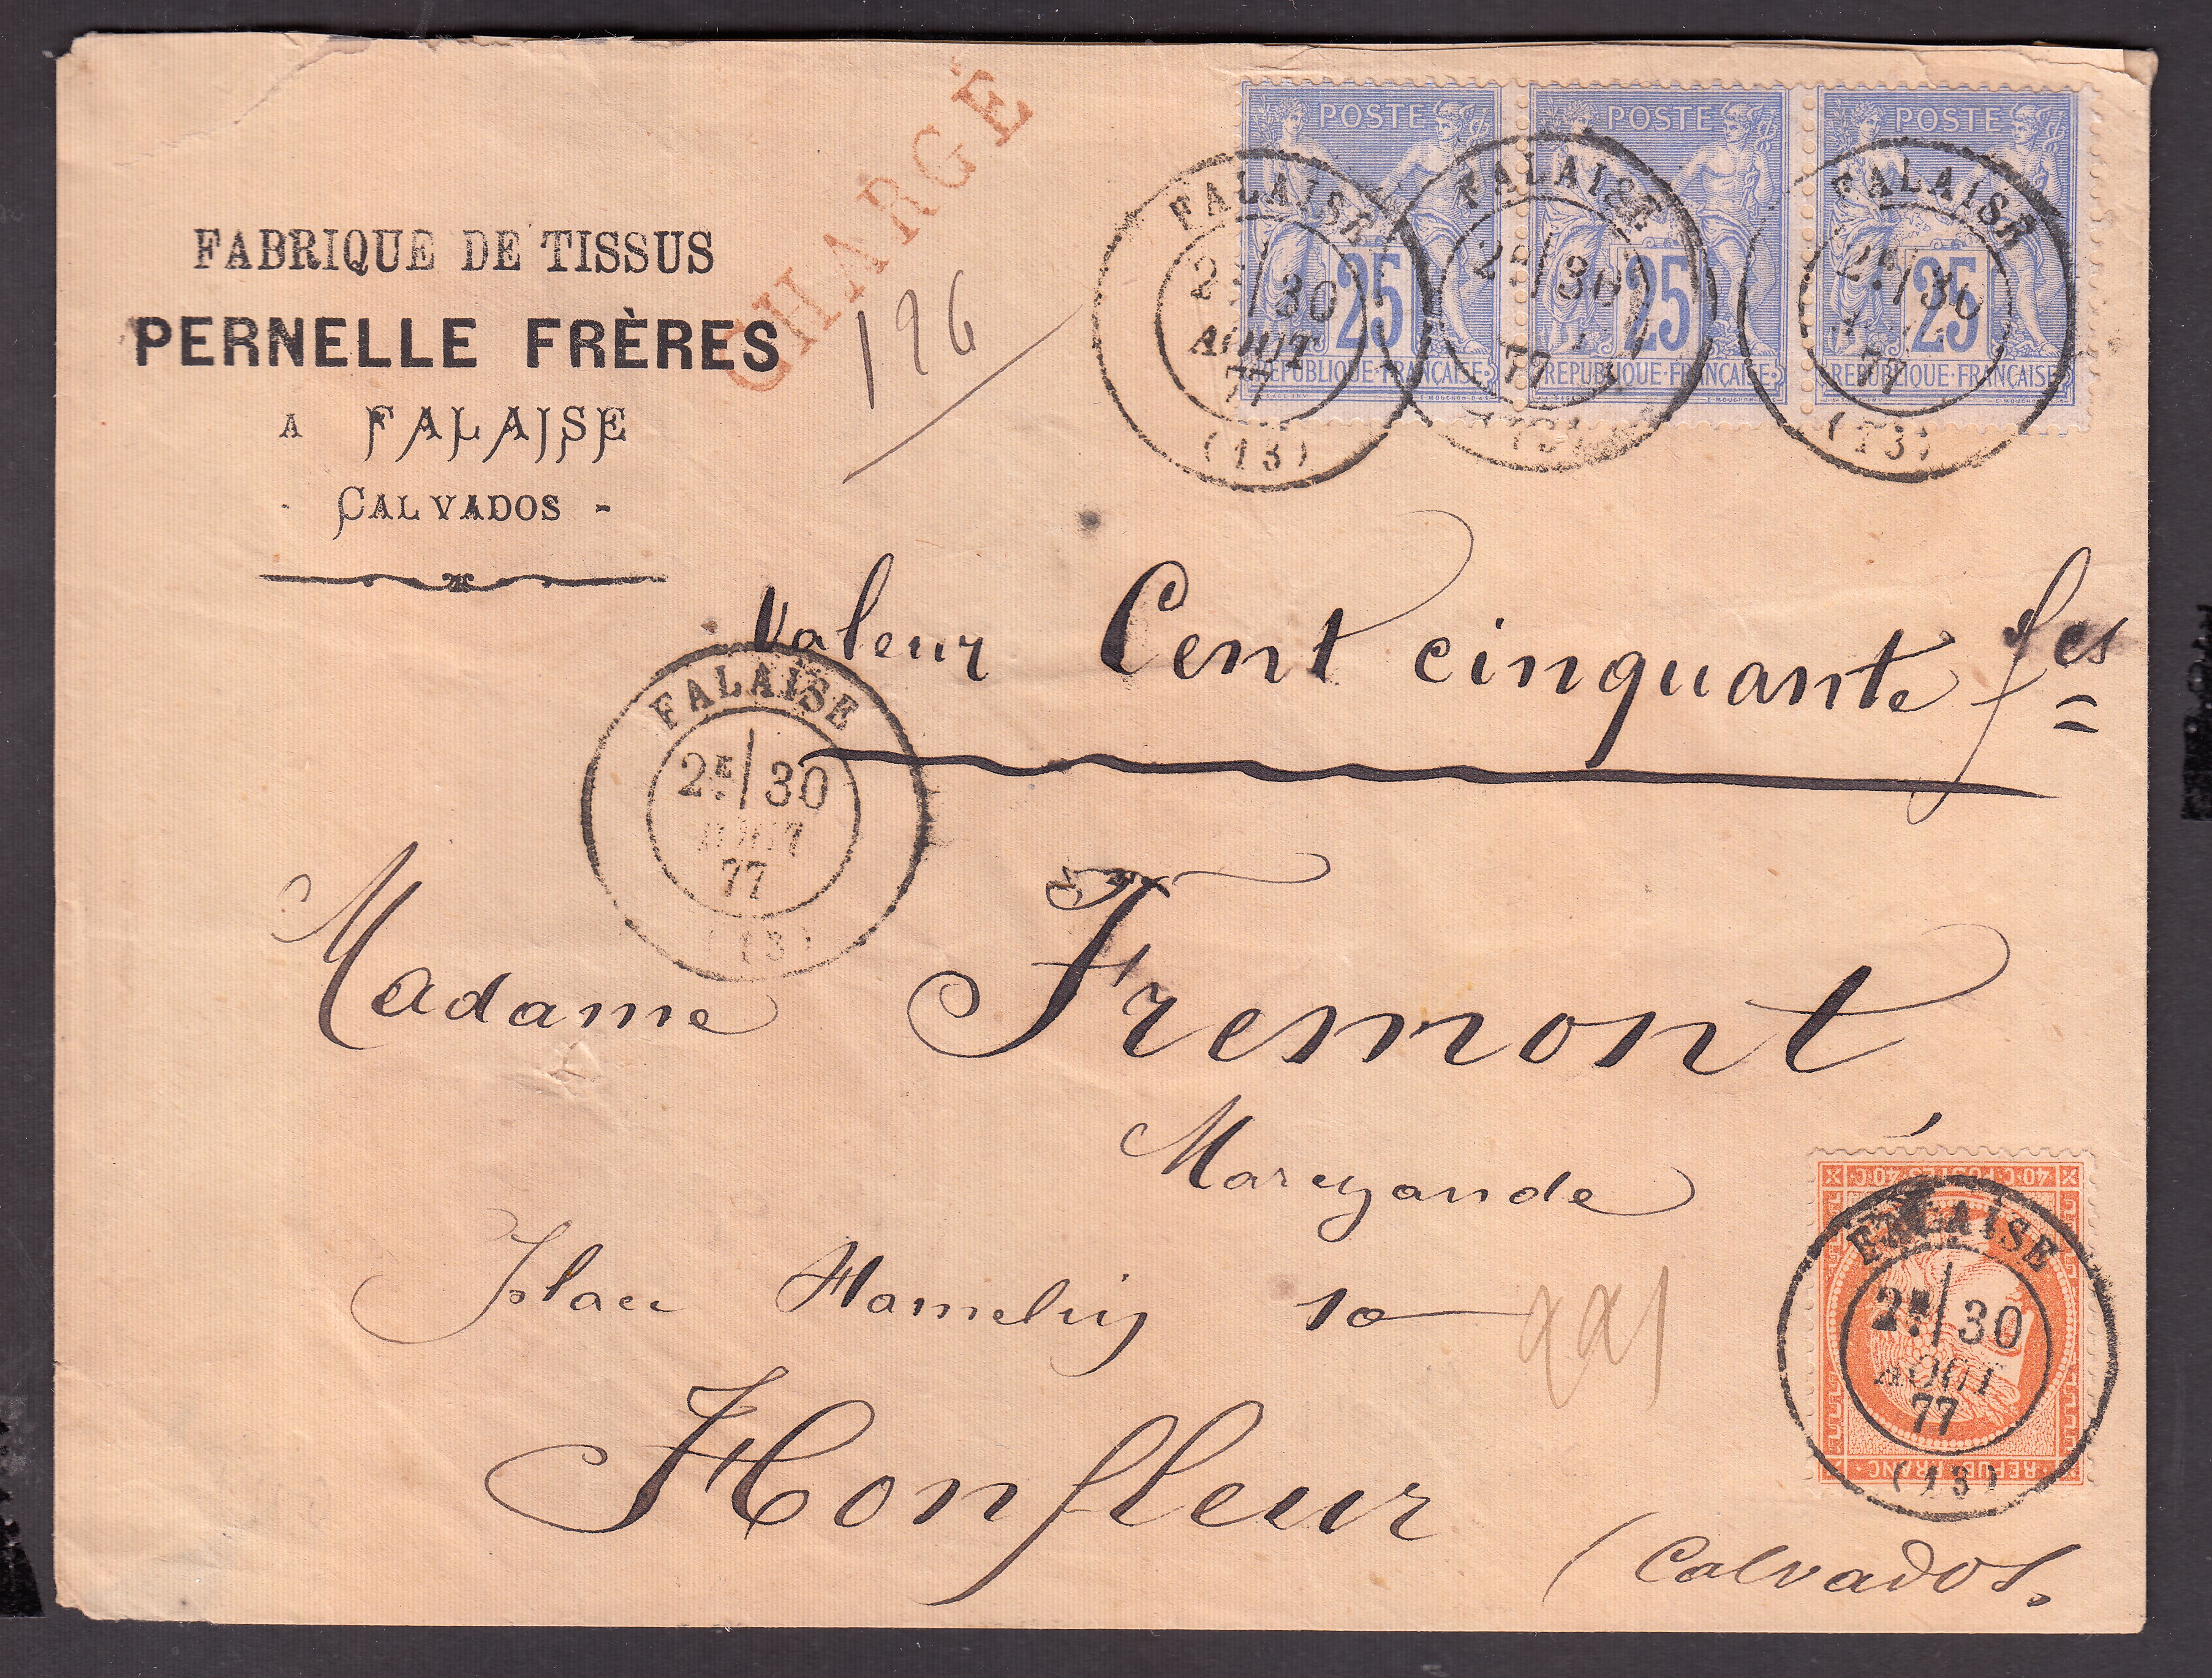 FABRIQUE DE TISSUS
PERNELLE FRÈRES
A FALAISE
- CALVADOS -
CHARGÉ
196
POSTE POSTE POSTE
25 25 25
REPUBLIQUE·FRANÇAISE REPUBLIQUE·FRANÇAISE REPUBLIQUE·FRANÇAISE
FALAISE
2E/30
AOUT
77
(13)
FALAISE
2E/30
77
(13)
FALAISE
2E/30
77
(13)
Valeur Cent cinquante fcs
FALAISE
2E/30
AOUT
77
(13)
Madame Fremont
Place Hamelin 10
Honfleur
(Calvados.
40·C·POSTES·40·C
REPUB·FRANC
FALAISE
2E/30
AOUT
77
(13)